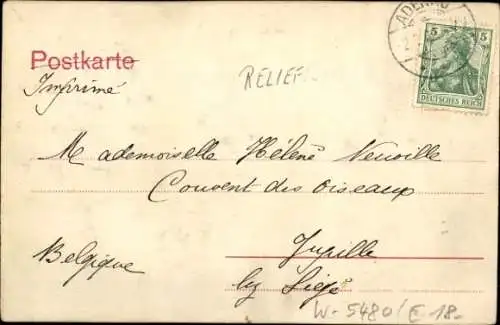 Postkarte
ADENAU
5 5
DEUTSCHES REICH
Imprimé
RELIEF
Mademoiselle Hélène Neuville
Couvent des Oiseaux
Belgique
Jupille
lez Liége
W-5480/E 18-